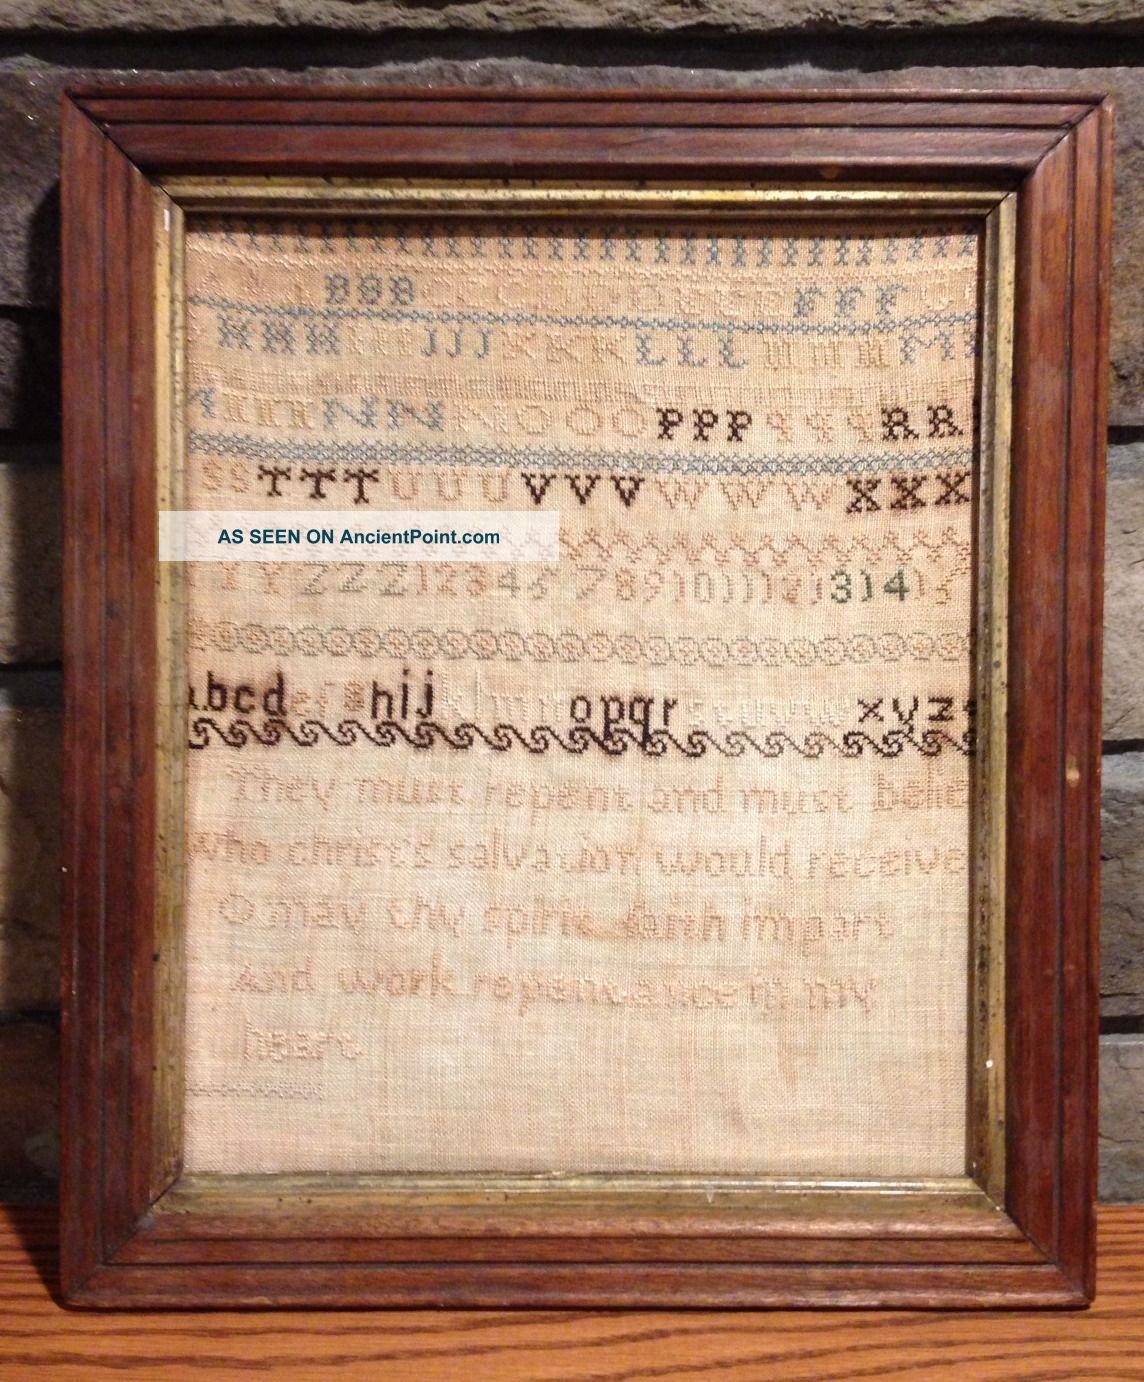 BBB CCC DDD EEE FFF
HHH III JJJ KKK LLL M
NNN OOO PPP qqq RR
SS TTT UUU VVV WWW XXX
AS SEEN ON AncientPoint.com
YY ZZZ 1 2 3 4 5 7 8 9 10 11 12 13 14 15
abcdefghijklmnopqr xyz
They must repent and must belie
who christ's salvation would receive
O may thy spirit faith impart
And work repentance in my
heart